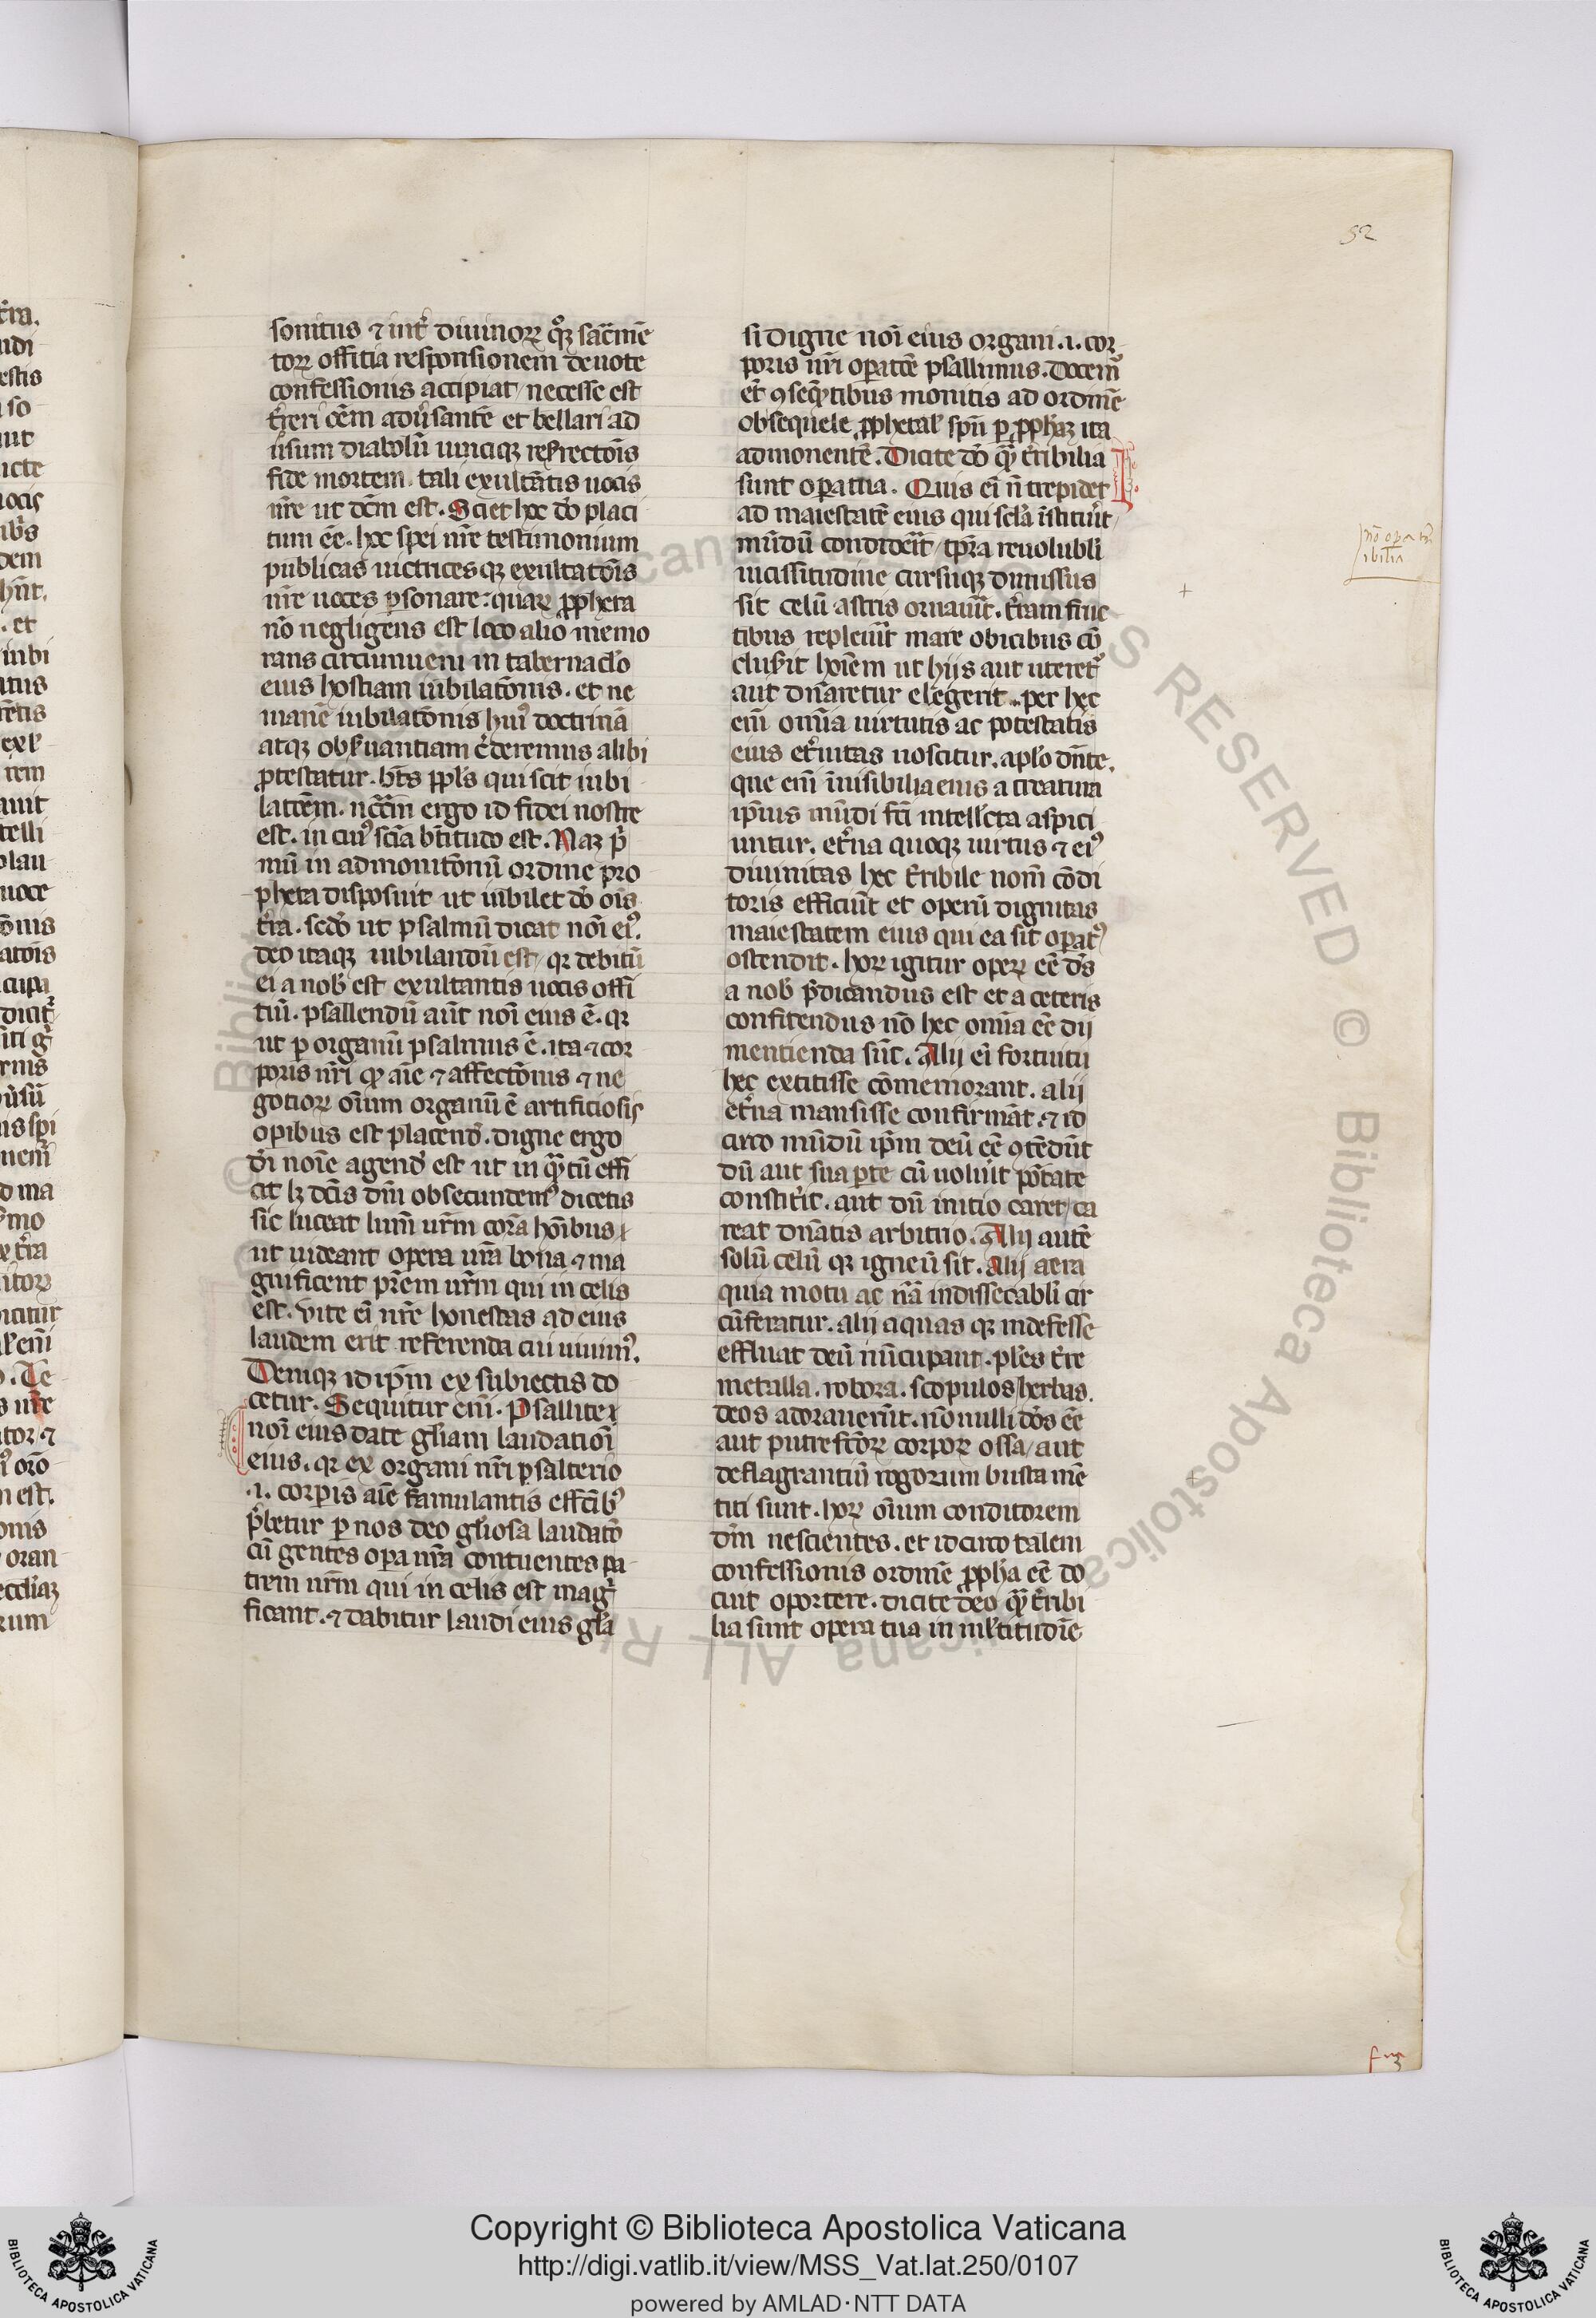 52
sonitus ⁊ int̾ diuinoꝝ qͦꝫ sac̄mē
toꝝ offitia responsionem deuote
confessionis accipiat / necesse est
t̾reri oēm adu̾santē et bellari ad
u̾sum diabolū uinciqꝫ resͬrectōis
fide mortem. tali exultātis uocis
nr̄e ut dc̄m est. Sciet hoc dō placi
tum eē. hoc spei nr̄e testimonium
publicas uictricesqꝫ exultatōis
nr̄e uoces ꝑsonare: quaꝝ ꝓpheta
nō negligens est loco alio memo
rans circuimueni in tabernaclo
eius hostiam iubilatōnis. et ne
manē iubilatōnis huiꝰ doctrinā
atqꝫ obs̾uantiam c̾deremus alibi
ꝓtestatur. bt̄s ppl̄s qui scit iubi
latōem. nc̄c̄m ergo id fidei nostre
est. in cuiꝰ scīa bt̄itudo est. Naꝫ pͥ
mū in admonitōnū ordine pro
pheta disposuit ut iubilet dō oīs
t̾ra. sedō ut psalmū dicat nōi eiꝰ.
deo itaqꝫ iubilandū est / qꝛ debitū
ei a nob̾ est exultantis uocis offi
tiū. psallendū aut̄ nōi eius ē. qꝛ
ut ꝑ organū psalmus ē. ita ⁊ cor
poris nr̄i ꝙ aīe ⁊ affectōnis ⁊ ne
gotioꝝ oīum organū ē artificiosis
opibus est placend̾. digne ergo
dī noīe agend̾ est ut in qᷓtū effi
cit
sic luceat lum̄ ur̄m corā hoībus
ut uideant opera ur̄a bona ⁊ ma
gnificent pr̄em ur̄m qui in celis
est. vite eī nr̄e honestas ad eius
laudem erit referenda cui uiuimꝰ.
Deniqꝫ id ip̄m ex subiectis do
cetur. Sequitur eni̅. Psallite
nōi eius date gl̄iam laudatiōi
eius. qꝛ ex organi nr̄i psalterio
.i. corꝑis aīe famulantis effc̄ibꝰ
p̾betur ꝑ nos deo gl̄iosa laudatō
cū gentes oꝑa nr̄a contuentes pa
trem nr̄m qui in celis est magͥ
ficant. ⁊ dabitur laudi eius gl̄a
si digne nōi eius organi .i. cor
poris nr̄i oꝑatōe psallimus. Docemꝰ
et̾ ꝯseqn̄tibus monitis ad ordinē
obsequele ꝓphetal̾ spm̄ ꝑ ꝓph̄aꝫ ita
admonentē. Dicite dō qᷓ t̾ribilia
sunt oꝑa tua. Quis eī n̄ trepidet
ad maiestatē eius qui scl̄a īstitu̾it /
mūdū condid̾it / tꝑ̄a reuolubli
uicissitudine cursuqꝫ dimissus
sit celū astris ornau̾it. t̾ram fruc
tibus repleu̾it mare obicibus cō
clus̾it hoīem ut hijs aut uteretꝰ
aut dn̄aretur elegerit. per hec
eni̅ om̄ia uirtutis ac potestatis
eius et̾nitas noscitur. apl̄o dn̄te.
que eni̅ īuisibilia eius a creatura
ip̄ius mūdi fc̄i intell̾cta aspici
untur. et̾na quoqꝫ uirtus ⁊ eiꝰ
diuinitas hec t̾ribile nom̄ cōdi
toris efficiūt et operū dignitas
maiestatem eius qui ea sit oꝑatꝰ
ostendit. hoꝝ igitur opeꝝ eē ds̄
a nob̾ p̾dicandus est et a ceteris
confitendus nō hec om̄ia eē dij
mentienda sūt. Alij eī fortuitu
hec extitisse cōmemorant. alij
et̾na mansisse confirmāt. ⁊ id
circo mūdū ip̄m deū eē ꝯtēdūt
dū aut sua ꝑte cū uolu̾it pt̄ate
constit̾it. aut dū initio caret / ca
reat dn̄atis arbitrio. Alij autē
solū celū qꝛ igneū sit. Alij aera
quia motu ac nāͣ indissecabli cir
cūferatur. alij aquas qꝛ indefesse
effluāt deū nūcupant. pl̾es t̾re
metalla. robora. scopulos herbas.
deos adorauerūt. nōnulli dōs eē
aut putrefc̄oꝝ corpoꝝ ossa / aut
deflagrantiū rogorum busta mē
titi sunt. hoꝝ oīum conditorem
dm̄ nescientes. et idcirco talem
confessionis ordinē ꝓph̄a eē do
cuit oportere. dicite deo qᷓ t̾ribi
lia sunt opera tua in ml̾titudīe
Copyright © Biblioteca Apostolica Vaticana
http://digi.vatlib.it/view/MSS_Vat.lat.250/0107
powered by AMLAD·NTT DATA